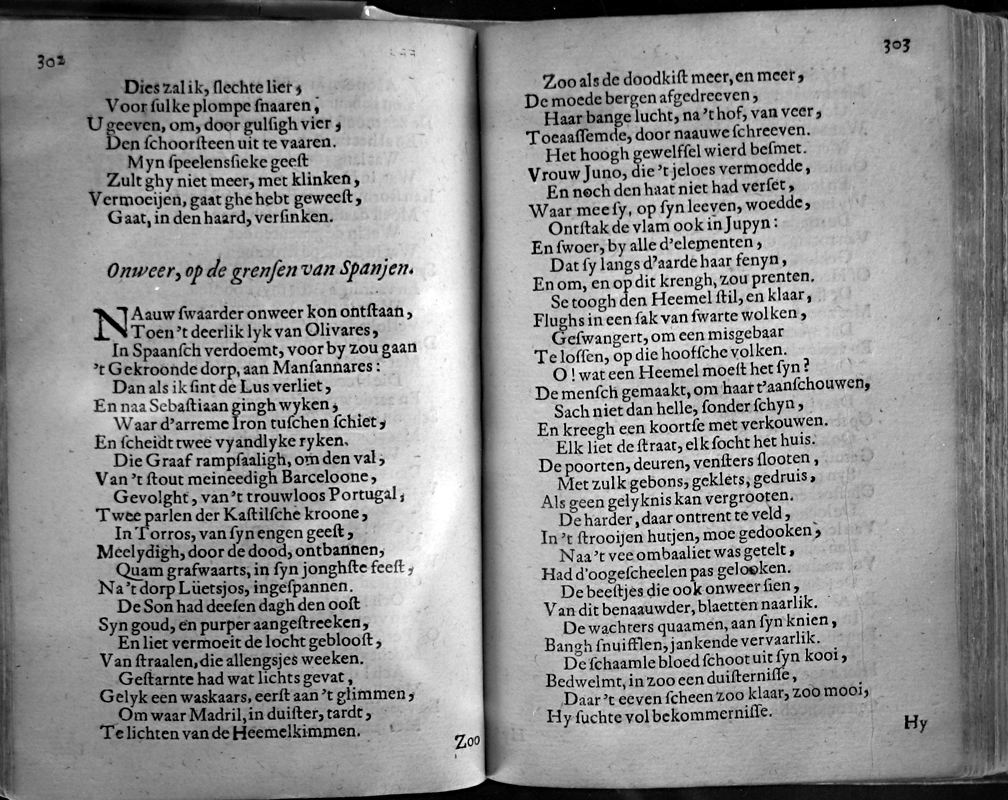 302
Dies zal ik, ſlechte lier,
Voor ſulke plompe ſnaaren,
U geeven, om, door gulſigh vier,
Den ſchoorſteen uit te vaaren.
Myn ſpeelensſieke geeſt
Zult ghy niet meer, met klinken,
Vermoeijen, gaat ghe hebt geweeſt,
Gaat, in den haard, verſinken.
Onweer, op de grenſen van Spanjen.
NAauw ſwaarder onweer kon ontſtaan,
Toen 't deerlik lyk van Olivares,
In Spaanſch verdoemt, voor by zou gaan
't Gekroonde dorp, aan Manſannares:
Dan als ik ſint de Lus verliet,
En naa Sebaſtiaan gingh wyken,
Waar d'arreme Iron tuſchen ſchiet,
En ſcheidt twee vyandlyke ryken.
Die Graaf rampſaaligh, om den val,
Van 't ſtout meineedigh Barceloone,
Gevolght, van 't trouwloos Portugal,
Twee parlen der Kaſtilſche kroone,
In Torros, van ſyn engen geeſt,
Meelydigh, door de dood, ontbannen,
Quam grafwaarts, in ſyn jonghſte feeſt,
Na 't dorp Lüetsjos, ingeſpannen.
De Son had deeſen dagh den ooſt
Syn goud, en purper aangeſtreeken,
En liet vermoeit de locht geblooſt,
Van ſtraalen, die allengsjes weeken.
Geſtarnte had wat lichts gevat,
Gelyk een waskaars, eerſt aan 't glimmen,
Om waar Madril, in duiſter, tardt,
Te lichten van de Heemelkimmen.
Zoo
303
Zoo als de doodkiſt meer, en meer,
De moede bergen afgedreeven,
Haar bange lucht, na 't hof, van veer,
Toeaaſſemde, door naauwe ſchreeven.
Het hoogh gewelfſel wierd beſmet.
Vrouw Juno, die 't jeloes vermoedde,
En noch den haat niet had verſet,
Waar mee ſy, op ſyn leeven, woedde,
Ontſtak de vlam ook in Jupyn:
En ſwoer, by alle d'elementen,
Dat ſy langs d'aarde haar fenyn,
En om, en op dit krengh, zou prenten.
Se toogh den Heemel ſtil, en klaar,
Flughs in een ſak van ſwarte wolken,
Geſwangert, om een misgebaar
Te loſſen, op die hooffſche volken.
O! wat een Heemel moeſt het ſyn?
De menſch gemaakt, om haar t'aanſchouwen,
Sach niet dan helle, ſonder ſchyn,
En kreegh een koortſe met verkouwen.
Elk liet de ſtraat, elk ſocht het huis.
De poorten, deuren, venſters ſlooten,
Met zulk gebons, geklets, gedruis,
Als geen gelyknis kan vergrooten.
De harder, daar ontrent te veld,
In 't ſtrooijen hutjen, moe gedooken,
Naa 't vee ombaaliet was getelt,
Had d'oogeſcheelen pas gelooken.
De beeſtjes die ook onweer ſien,
Van dit benaauwder, blaetten naarlik.
De wachters quaamen, aan ſyn knien,
Bangh ſnuifflen, jankende vervaarlik.
De ſchaamle bloed ſchoot uit ſyn kooi,
Bedwelmt, in zoo een duiſterniſſe,
Daar 't eeven ſcheen zoo klaar, zoo mooi,
Hy ſuchte vol bekommerniſſe.
Hy